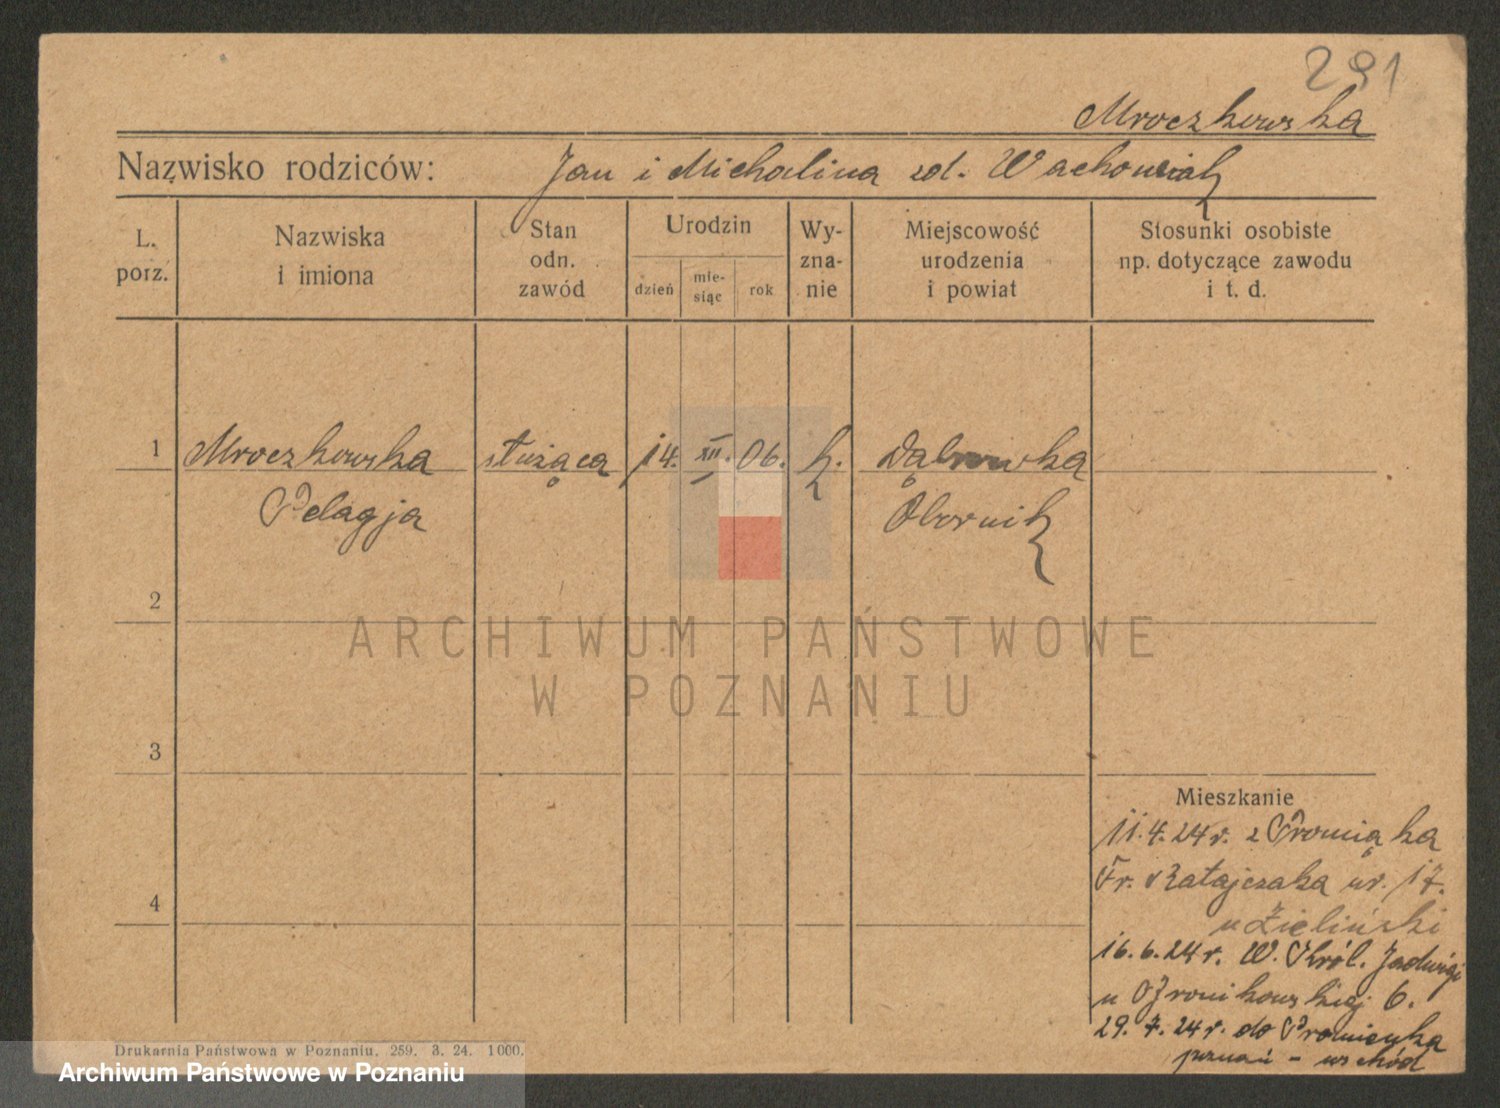 291
Mroczkowska
Nazwisko rodziców: Jan i Michalina zd. Wachowiak
L. porz.
Nazwiska i imiona
Stan odn. zawód
Urodzin
dzień
mie-siąc
rok
Wy-zna-nie
Miejscowość urodzenia i powiat
Stosunki osobiste np. dotyczące zawodu i t. d.
1 Mroczkowska służąca 14. XII. 06. k. Dąbrówka
Pelagja Obornik
2
ARCHIWUM PAŃSTWOWE
W POZNANIU
3
Mieszkanie
11.4.24 r. z
Fr. Ratajczaka nr. 17.
4
u Zieliński
16.6.24 r. W. Król. Jadwigi
u 6.
29.7.24 r. do Promienka
poznań - wschód
Drukarnia Państwowa w Poznaniu. 259. 3. 24. 1000.
Archiwum Państwowe w Poznaniu